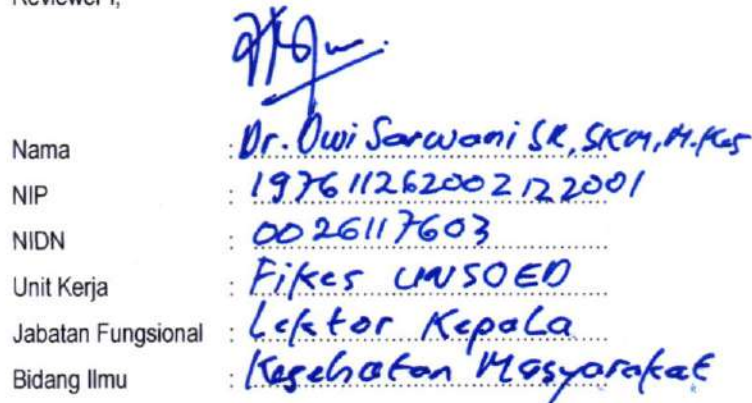 Reviewer I,
Nama : Dr. Dwi Sarwani SR, SKM, M.Kes
NIP : 197611262002122001
NIDN : 0026117603
Unit Kerja : Fikes UNSOED
Jabatan Fungsional : Lektor Kepala
Bidang Ilmu : Kesehatan Masyarakat